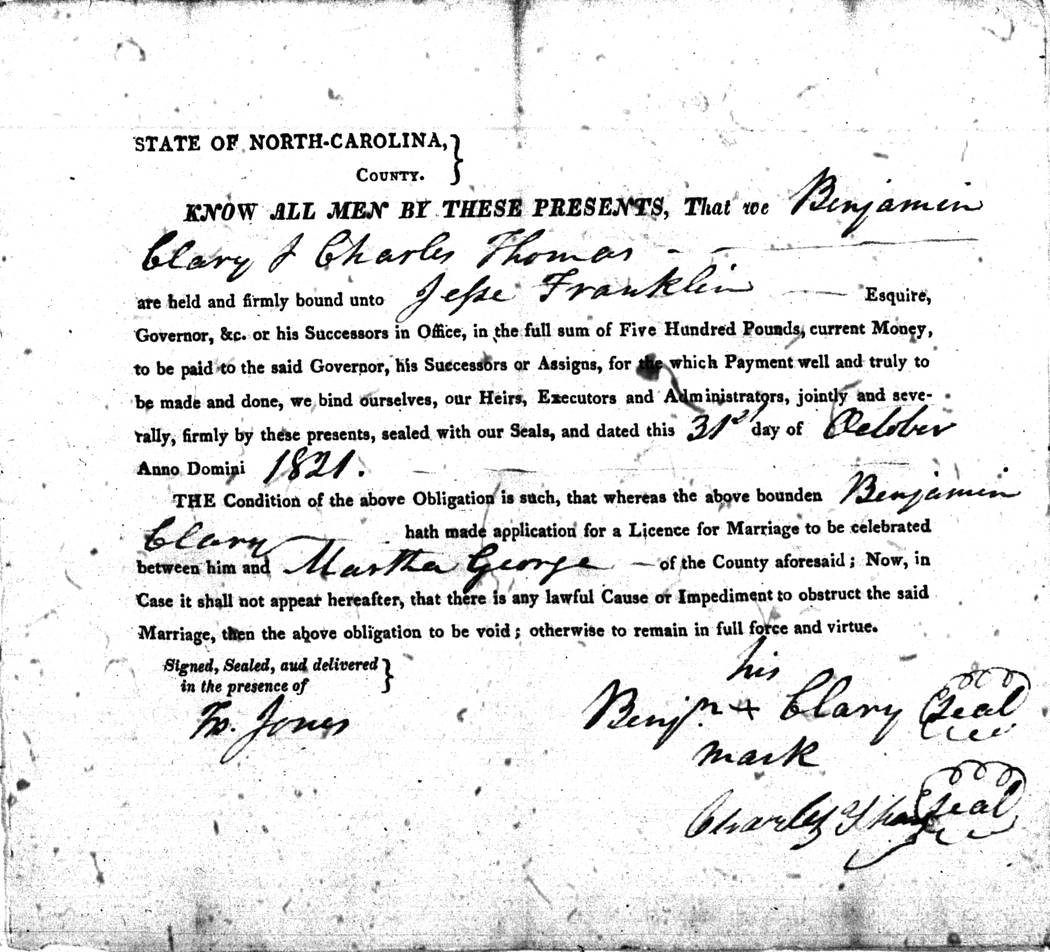 STATE OF NORTH-CAROLINA, }
COUNTY.
KNOW ALL MEN BY THESE PRESENTS, That we Benjamin
Clary & Charles Thomas
are held and firmly bound unto Jesse Franklin Esquire,
Governor, &c. or his Successors in Office, in the full sum of Five Hundred Pounds, current Money,
to be paid to the said Governor, his Successors or Assigns, for the which Payment well and truly to
be made and done, we bind ourselves, our Heirs, Executors and Administrators, jointly and seve-
rally, firmly by these presents, sealed with our Seals, and dated this 31st day of October
Anno Domini 1821.
THE Condition of the above Obligation is such, that whereas the above bounden Benjamin
Clary hath made application for a Licence for Marriage to be celebrated
between him and Martha George of the County aforesaid; Now, in
Case it shall not appear hereafter, that there is any lawful Cause or Impediment to obstruct the said
Marriage, then the above obligation to be void; otherwise to remain in full force and virtue.
Signed, Sealed, aud delivered }
in the presence of
his
Th. Jones
Benjn. + Clary Seal
mark
Charles Seal